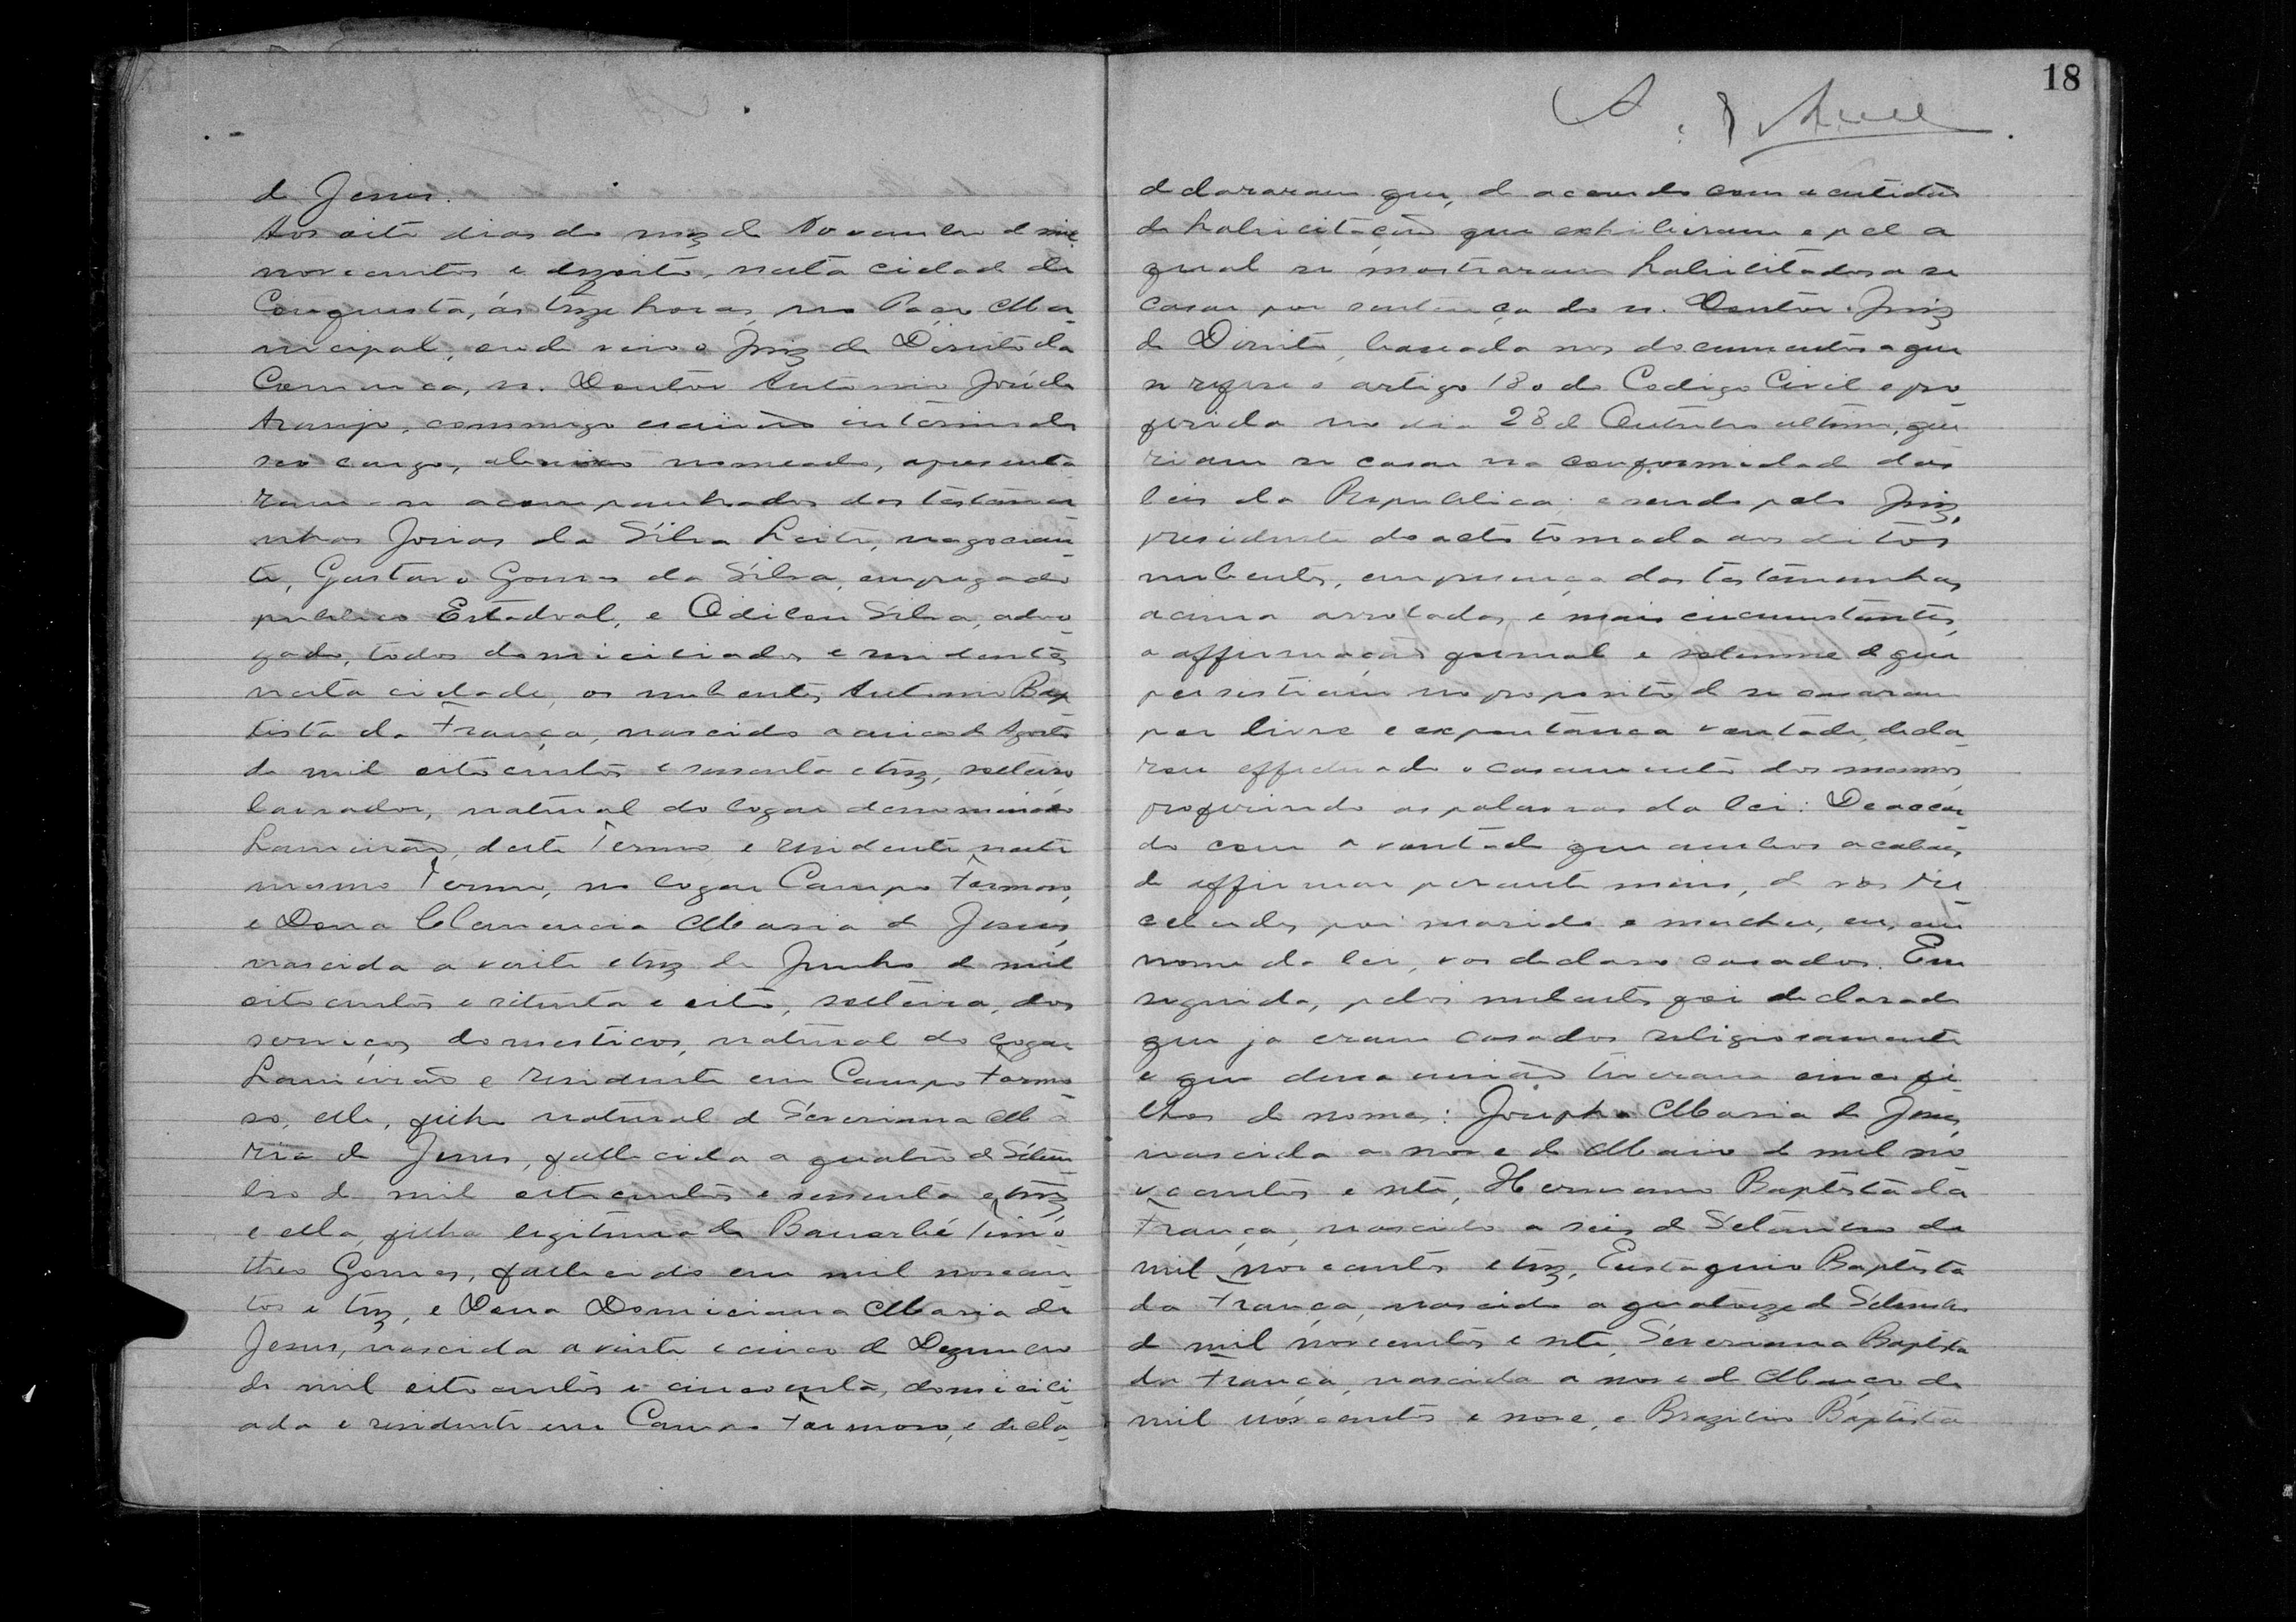 de Jesus.
Aos oito dias do mez de Novembro de mil
novecentos e dezoito, nesta cidade de
Conquista, ás treze horas, no Paço Mu-
nicipal, onde veio o Juiz de Direito da
Comarca, sr. Doutor Antonio José de
Araujo, commigo escrivão interino do
seu cargo, abaixo nomeado, apresenta-
ram-se acompanhados das testemu-
nhas Josias da Silva Leite, negocian-
te, Gustavo Gomes da Silva, empregado
publico Estadual, e Odilon Silva, advo-
gado, todos domiciliados e residentes
nesta cidade, os nubentes Antonio Bap-
tista da França, nascido a cinco de Agosto
de mil oitocentos e sessenta e trez, solteiro,
lavrador, natural do logar denominado
Lameirão, deste Termo e residente neste
mesmo Termo, no logar Campo Formoso,
e Dona Clemencia Maria de Jesus,
nascida a vinte e trez de Junho de mil
oitocentos e setenta e oito, solteira, dos
serviços domesticos, natural do logar
Lameirão e residente em Campo Formo-
so, elle, filho natural de Severiana Ma-
ria de Jesus, fallecida a quatro de Setem-
bro de mil oitocentos e sessenta e trez,
e ella, filha legitima de Barnabé Timo-
theo Gomes, fallecido em mil novecen-
tos e trez, e Dona Domiciana Maria de
Jesus, nascida a vinte e cinco de Dezembro
de mil oitocentos e cincoenta, domicili-
ada e residente em Campo Formoso, e decla-
18
declararam que, de accordo com a certidão
de habilitação que exhibiram e pela
qual se mostraram habilitados a se
casar por sentença do sr. Doutor Juiz
de Direito, baseada nos documentos a que
se refere o artigo 180 do Codigo Civil e pro-
ferida no dia 28 de Outubro ultimo, que-
riam se casar na conformidade das
leis da Republica; e sendo pelo Juiz,
presidente do acto tomada aos ditos
nubentes, em presença das testemunhas
acima arroladas e mais circumstantes,
a affirmação formal e solemne de que
persistiam no proposito de se casarem
por livre e expontanea vontade, decla-
rou effectuado o casamento dos mesmos,
proferindo as palavras da lei: De accor-
do com a vontade que ambos acabaes
de affirmar perante mim, de vos re-
ceberdes por marido e mulher, eu, em
nome da lei, vos declaro casados. Em
seguida, pelos nubentes foi declarado
que ja eram casados religiosamente
e que dessa união tiveram cinco fi-
lhos de nomes: Josepha Maria de Jesus,
nascida a nove de Maio de mil no-
vecentos e sete, Hermano Baptista da
França, nascido a seis de Setembro de
mil novecentos e trez, Eustaquio Baptista
da França, nascido a quatorze de Setembro
de mil novecentos e sete, Severiana Baptista
da França, nascida a nove de Março de
mil novecentos e nove, e Brazilino Baptista